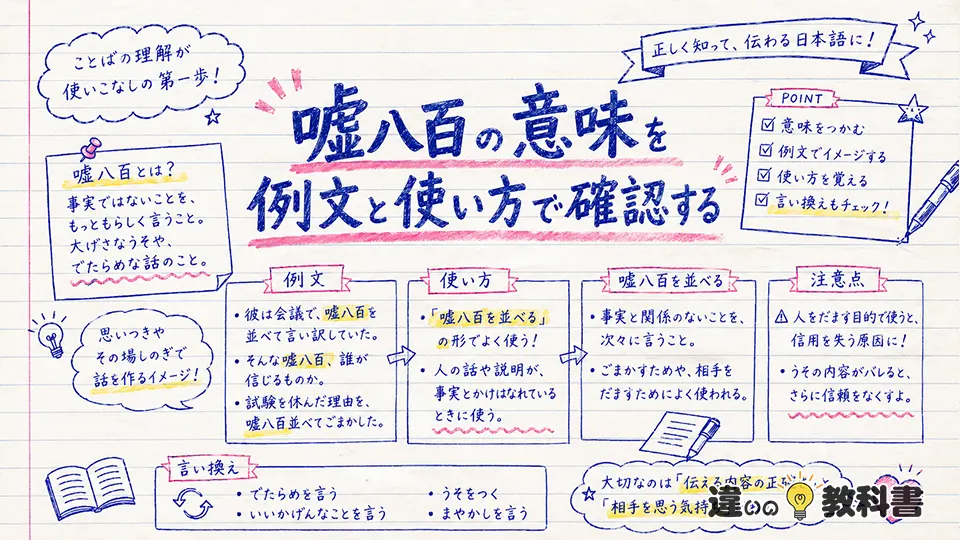 ことばの理解が
使いこなしの第一歩！
正しく知って、伝わる日本語に！
嘘八百の意味を
例文と使い方で確認する
POINT
意味をつかむ
例文でイメージする
使い方を覚える
言い換えもチェック！
嘘八百とは？
事実ではないことを、
もっともらしく言うこと。
大げさなうそや、
でたらめな話のこと。
思いつきや
その場しのぎで
話を作るイメージ！
例文
・彼は会議で、嘘八百を
並べて言い訳していた。
・そんな嘘八百、誰が
信じるものか。
・試験を休んだ理由を、
嘘八百並べてごまかした。
使い方
・「嘘八百を並べる」
の形でよく使う！
・人の話や説明が、
事実とかけはなれている
ときに使う。
嘘八百を並べる
・事実と関係のないことを、
次々に言うこと。
・ごまかすためや、相手を
だますためによく使われる。
注意点
⚠人をだます目的で使うと、
信用を失う原因に！
・うその内容がバレると、
さらに信頼をなくすよ。
言い換え
・でたらめを言う
・いいかげんなことを言う
・うそをつく
・まやかしを言う
大切なのは「伝える内容の正
「相手を思う気持
違いの教科書